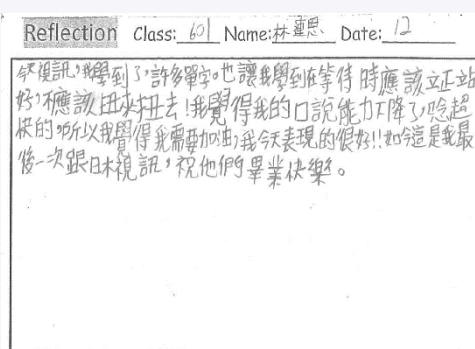 Reflection Class: 601 Name: 林童恩 Date: 12
今天視訊,我學到了許多單字。也讓我學到在等待時應該立正站
好,不應該扭來扭去!我覺得我的口說能力下降了,唸超
快的,所以我覺得我需要加油,我今天表現的很好!!如今這是我最
後一次跟日本視訊,祝他們畢業快樂。